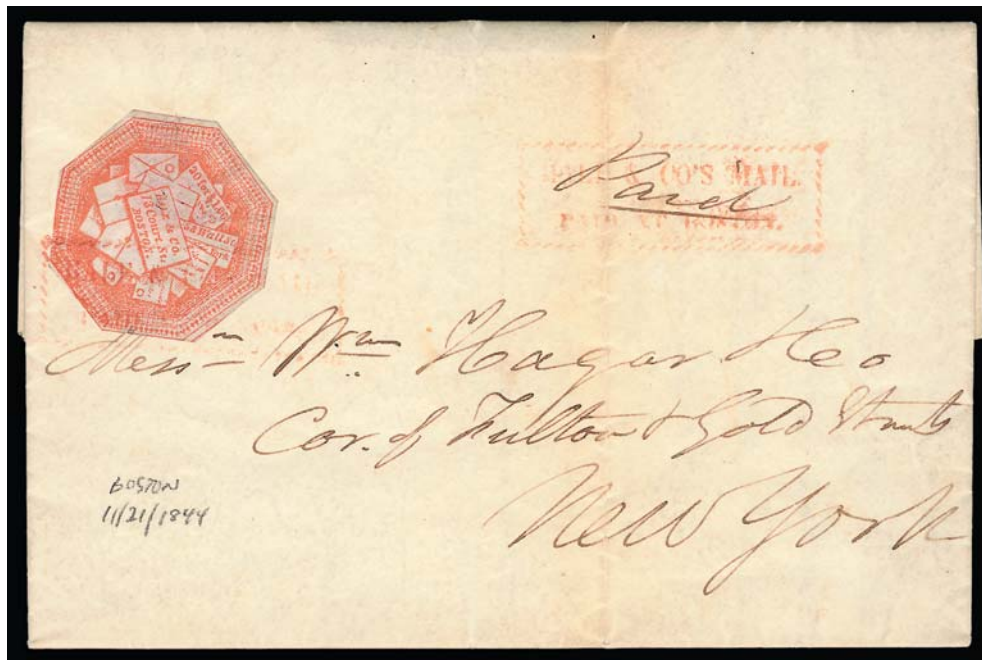 20 for $1.00
Wall St
Hale & Co.
13 Court St.
BOSTON.
Paid
CO'S MAIL.
PAID AT BOSTON.
Messrs Wm Hagar & Co
Cor. of Fulton & Gold Streets
New York
BOSTON
11/21/1844